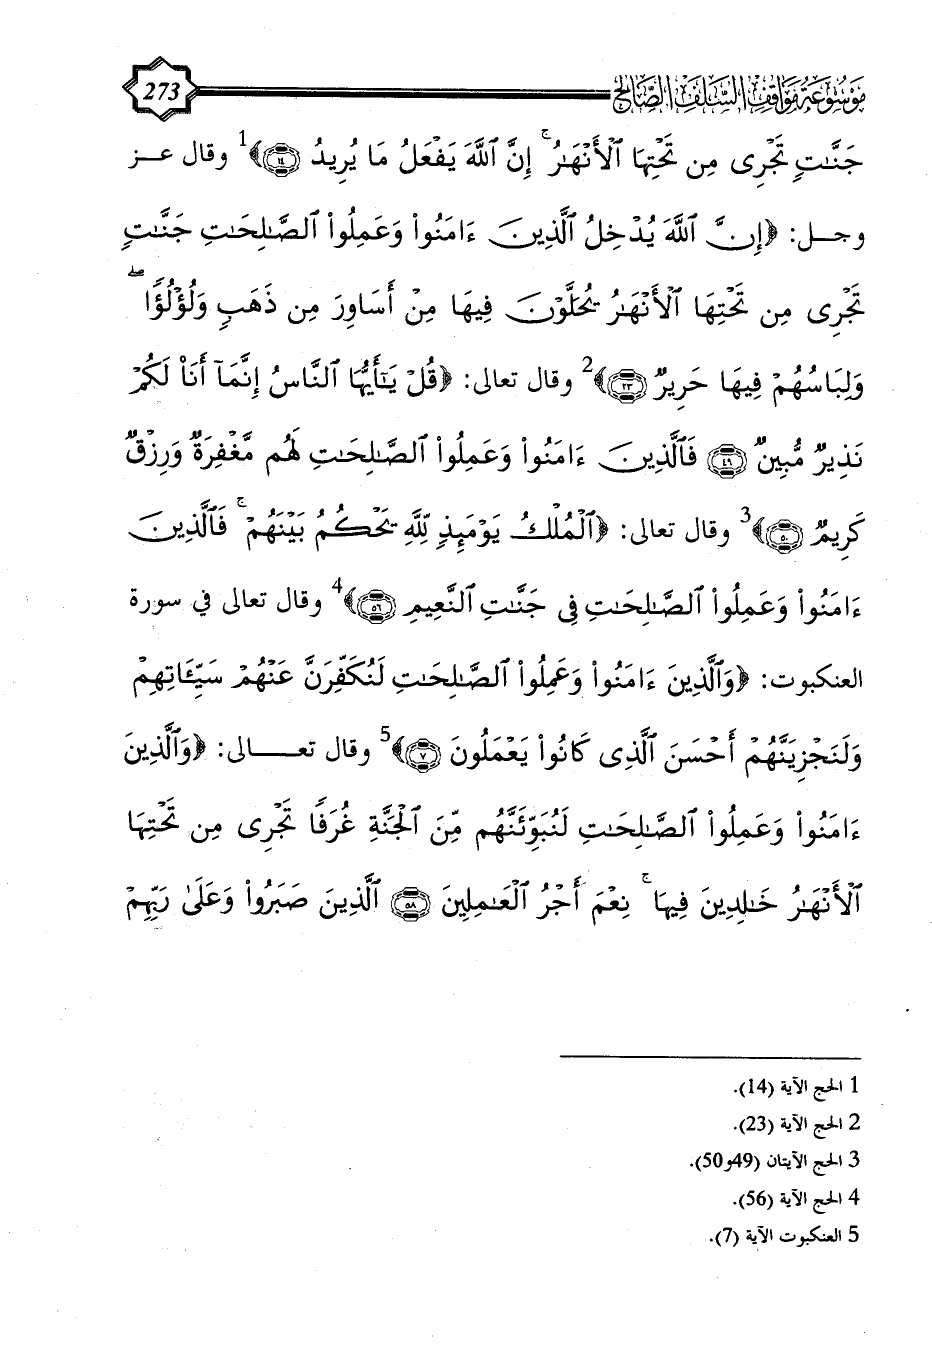 موسوعة مواقف السلف الصالح 273
جَنَّٰتٍ تَجْرِى مِن تَحْتِهَا ٱلْأَنْهَٰرُ ۚ إِنَّ ٱللَّهَ يَفْعَلُ مَا يُرِيدُ ﴿١٤﴾ ﴾1 وقال عـز
وجـل: ﴿إِنَّ ٱللَّهَ يُدْخِلُ ٱلَّذِينَ ءَامَنُوا۟ وَعَمِلُوا۟ ٱلصَّٰلِحَٰتِ جَنَّٰتٍ
تَجْرِى مِن تَحْتِهَا ٱلْأَنْهَٰرُ يُحَلَّوْنَ فِيهَا مِنْ أَسَاوِرَ مِن ذَهَبٍ وَلُؤْلُؤًا ۖ
وَلِبَاسُهُمْ فِيهَا حَرِيرٌ ﴿٢٣﴾ ﴾2 وقال تعالى: ﴿قُلْ يَٰٓأَيُّهَا ٱلنَّاسُ إِنَّمَآ أَنَا۠ لَكُمْ
نَذِيرٌ مُّبِينٌ ﴿٤٩﴾ فَٱلَّذِينَ ءَامَنُوا۟ وَعَمِلُوا۟ ٱلصَّٰلِحَٰتِ لَهُم مَّغْفِرَةٌ وَرِزْقٌ
كَرِيمٌ ﴿٥٠﴾ ﴾3 وقال تعالى: ﴿ٱلْمُلْكُ يَوْمَئِذٍ لِّلَّهِ يَحْكُمُ بَيْنَهُمْ ۚ فَٱلَّذِينَ
ءَامَنُوا۟ وَعَمِلُوا۟ ٱلصَّٰلِحَٰتِ فِى جَنَّٰتِ ٱلنَّعِيمِ ﴿٥٦﴾ ﴾4 وقال تعالى في سورة
العنكبوت: ﴿وَٱلَّذِينَ ءَامَنُوا۟ وَعَمِلُوا۟ ٱلصَّٰلِحَٰتِ لَنُكَفِّرَنَّ عَنْهُمْ سَيِّـَٔاتِهِمْ
وَلَنَجْزِيَنَّهُمْ أَحْسَنَ ٱلَّذِى كَانُوا۟ يَعْمَلُونَ ﴿٧﴾ ﴾5 وقال تعـــالى: ﴿وَٱلَّذِينَ
ءَامَنُوا۟ وَعَمِلُوا۟ ٱلصَّٰلِحَٰتِ لَنُبَوِّئَنَّهُم مِّنَ ٱلْجَنَّةِ غُرَفًا تَجْرِى مِن تَحْتِهَا
ٱلْأَنْهَٰرُ خَٰلِدِينَ فِيهَا ۚ نِعْمَ أَجْرُ ٱلْعَٰمِلِينَ ﴿٥٨﴾ ٱلَّذِينَ صَبَرُوا۟ وَعَلَىٰ رَبِّهِمْ
1 الحج الآية (14).
2 الحج الآية (23).
3 الحج الآيتان (49و50).
4 الحج الآية (56).
5 العنكبوت الآية (7).